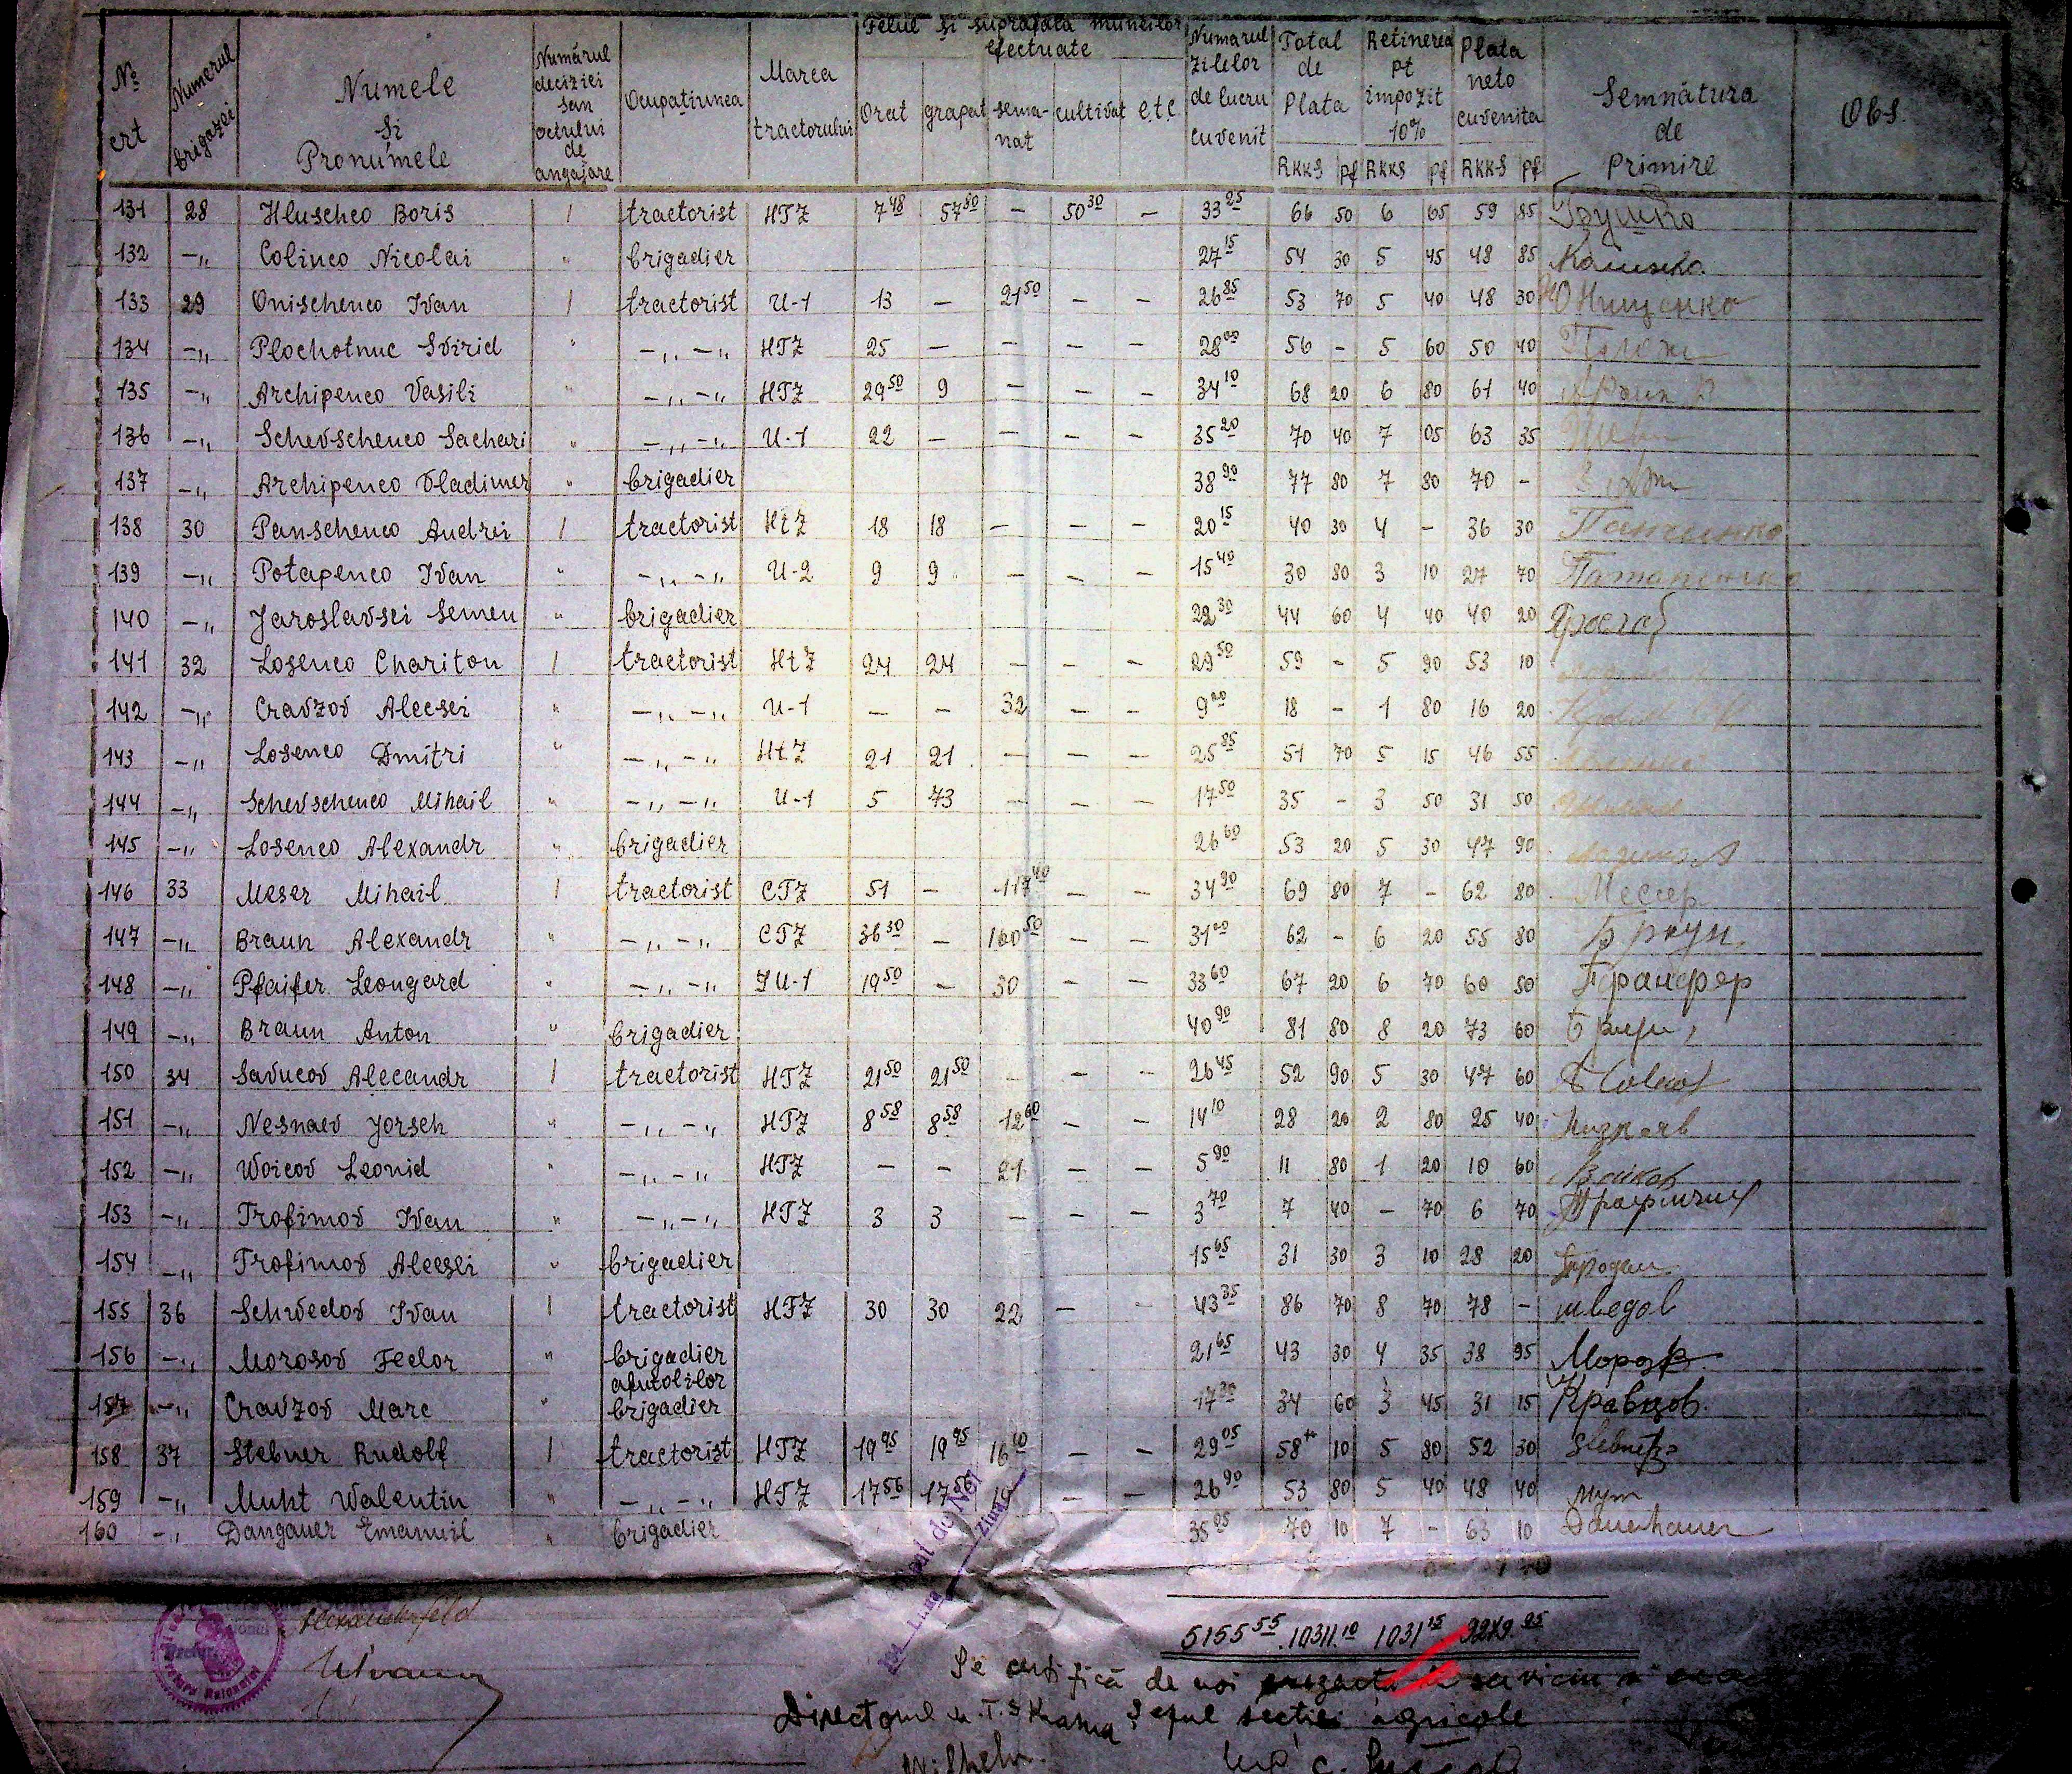 Felul și suprafața muncilor efectuate
№ crt Numerul brigazei Numele și Pronumele Numărul deciziei sau actului de angajare Ocupațiunea Marca tractorului Orat grapat sema-nat cultivat e.t.c. Numarul zilelor de lucru cuvenit Total de Plata Retinerea pt impozit 10% Plata neto cuvenita Semnătura de Primire Obs.
RKKS pf RKKS pf RKKS pf
131 28 Hluscheo Boris 1 tractorist HTZ 7 48 57 80 - 50 30 - 33 25 66 50 6 65 59 85
132 -„ Colinco Nicolai " brigadier 27 15 54 30 5 45 48 85
133 29 Onischenco Ivan 1 tractorist U-1 13 - 21 50 - - 26 85 53 70 5 40 48 30 Онищенко
134 -„ Plochotnuc Svirid " -„-„ HTZ 25 - - - - 28 00 56 - 5 60 50 40
135 -„ Archipenco Vasili " -„-„ HTZ 29 50 9 - - - 34 10 68 20 6 80 61 40
136 -„ Schevschenco Sachari " -„-„ U-1 22 - - - - 35 20 70 40 7 05 63 35
137 -„ Archipenco Vladimer " brigadier 38 90 77 80 7 80 70 -
138 30 Panschenco Andrei 1 tractorist HtZ 18 18 - 20 15 40 30 4 - 36 30 Панченко
139 -„ Potapenco Ivan " -„-„ U-2 9 9 - - - 15 40 30 80 3 10 27 70
140 -„ Jaroslavsci Semen " brigadier 22 30 44 60 4 40 40 20
141 32 Losenco Chariton 1 tractorist HtZ 24 24 - - - 29 50 59 - 5 90 53 10
142 -„ Cravzov Alecsei " -„-„ U-1 - - 32 - - 9 00 18 - 1 80 16 20
143 -„ Losenco Dmitri " -„-„ HtZ 21 21 - - - 25 85 51 70 5 15 46 55
144 -„ Schevschenco Mihail " -„-„ U-1 5 73 - - - 17 50 35 - 3 50 31 50
145 -„ Losenco Alexandr " brigadier 26 60 53 20 5 30 47 90
146 33 Meser Mihail 1 tractorist CTZ 51 - 117 40 - - 34 90 69 80 7 - 62 80 Мессер
147 -„ Braun Alexandr " -„-„ CTZ 36 30 - 160 50 - - 31 00 62 - 6 20 55 80 Браун
148 -„ Pfaifer Leongard " -„-„ JU-1 19 50 - 30 - - 33 60 67 20 6 70 60 50
149 -„ Braun Anton " brigadier 40 90 81 80 8 20 73 60
150 34 Savucov Alecandr 1 tractorist HTZ 21 50 21 50 - - - 26 45 52 90 5 30 47 60
151 -„ Nesnaev Jorsch " -„-„ HTZ 8 58 8 58 12 60 - - 14 10 28 20 2 80 25 40
152 -„ Woicov Leonid " -„-„ HTZ - - 21 - - 5 90 11 80 1 20 10 60 Войков
153 -„ Trofimov Ivan " -„-„ HTZ 3 3 - - - 3 70 7 40 - 70 6 70
154 -„ Trofimov Alecsei " brigadier 15 65 31 30 3 10 28 20
155 36 Schvedov Ivan 1 tractorist HTZ 30 30 22 - - 43 35 86 70 8 70 78 - шведов
156 -„ Morosov Fedor " brigadier 21 65 43 30 4 35 38 95
157 -„ Cravzov Marc " brigadier 17 30 34 60 3 45 31 15 Кравцов.
158 37 Stebner Rudolf 1 tractorist HTZ 19 95 19 95 16 40 - - 29 05 58 10 5 80 52 30
159 -„ Muht Walentin " -„-„ HTZ 17 56 17 56 - - 26 90 53 80 5 40 48 40 мут
160 -„ Dangauer Emanuil " brigadier 35 05 70 10 7 - 63 10
5155 55 10311.10 1031 15 9279.95
Alexanderfeld
Se certifică de noi serviciu
Directorul M.T.S Șeful secției agricole
Wilhelm.